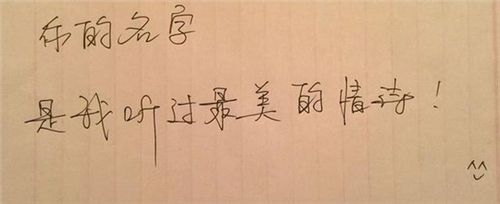 你的名字
是我听过最美的情诗！